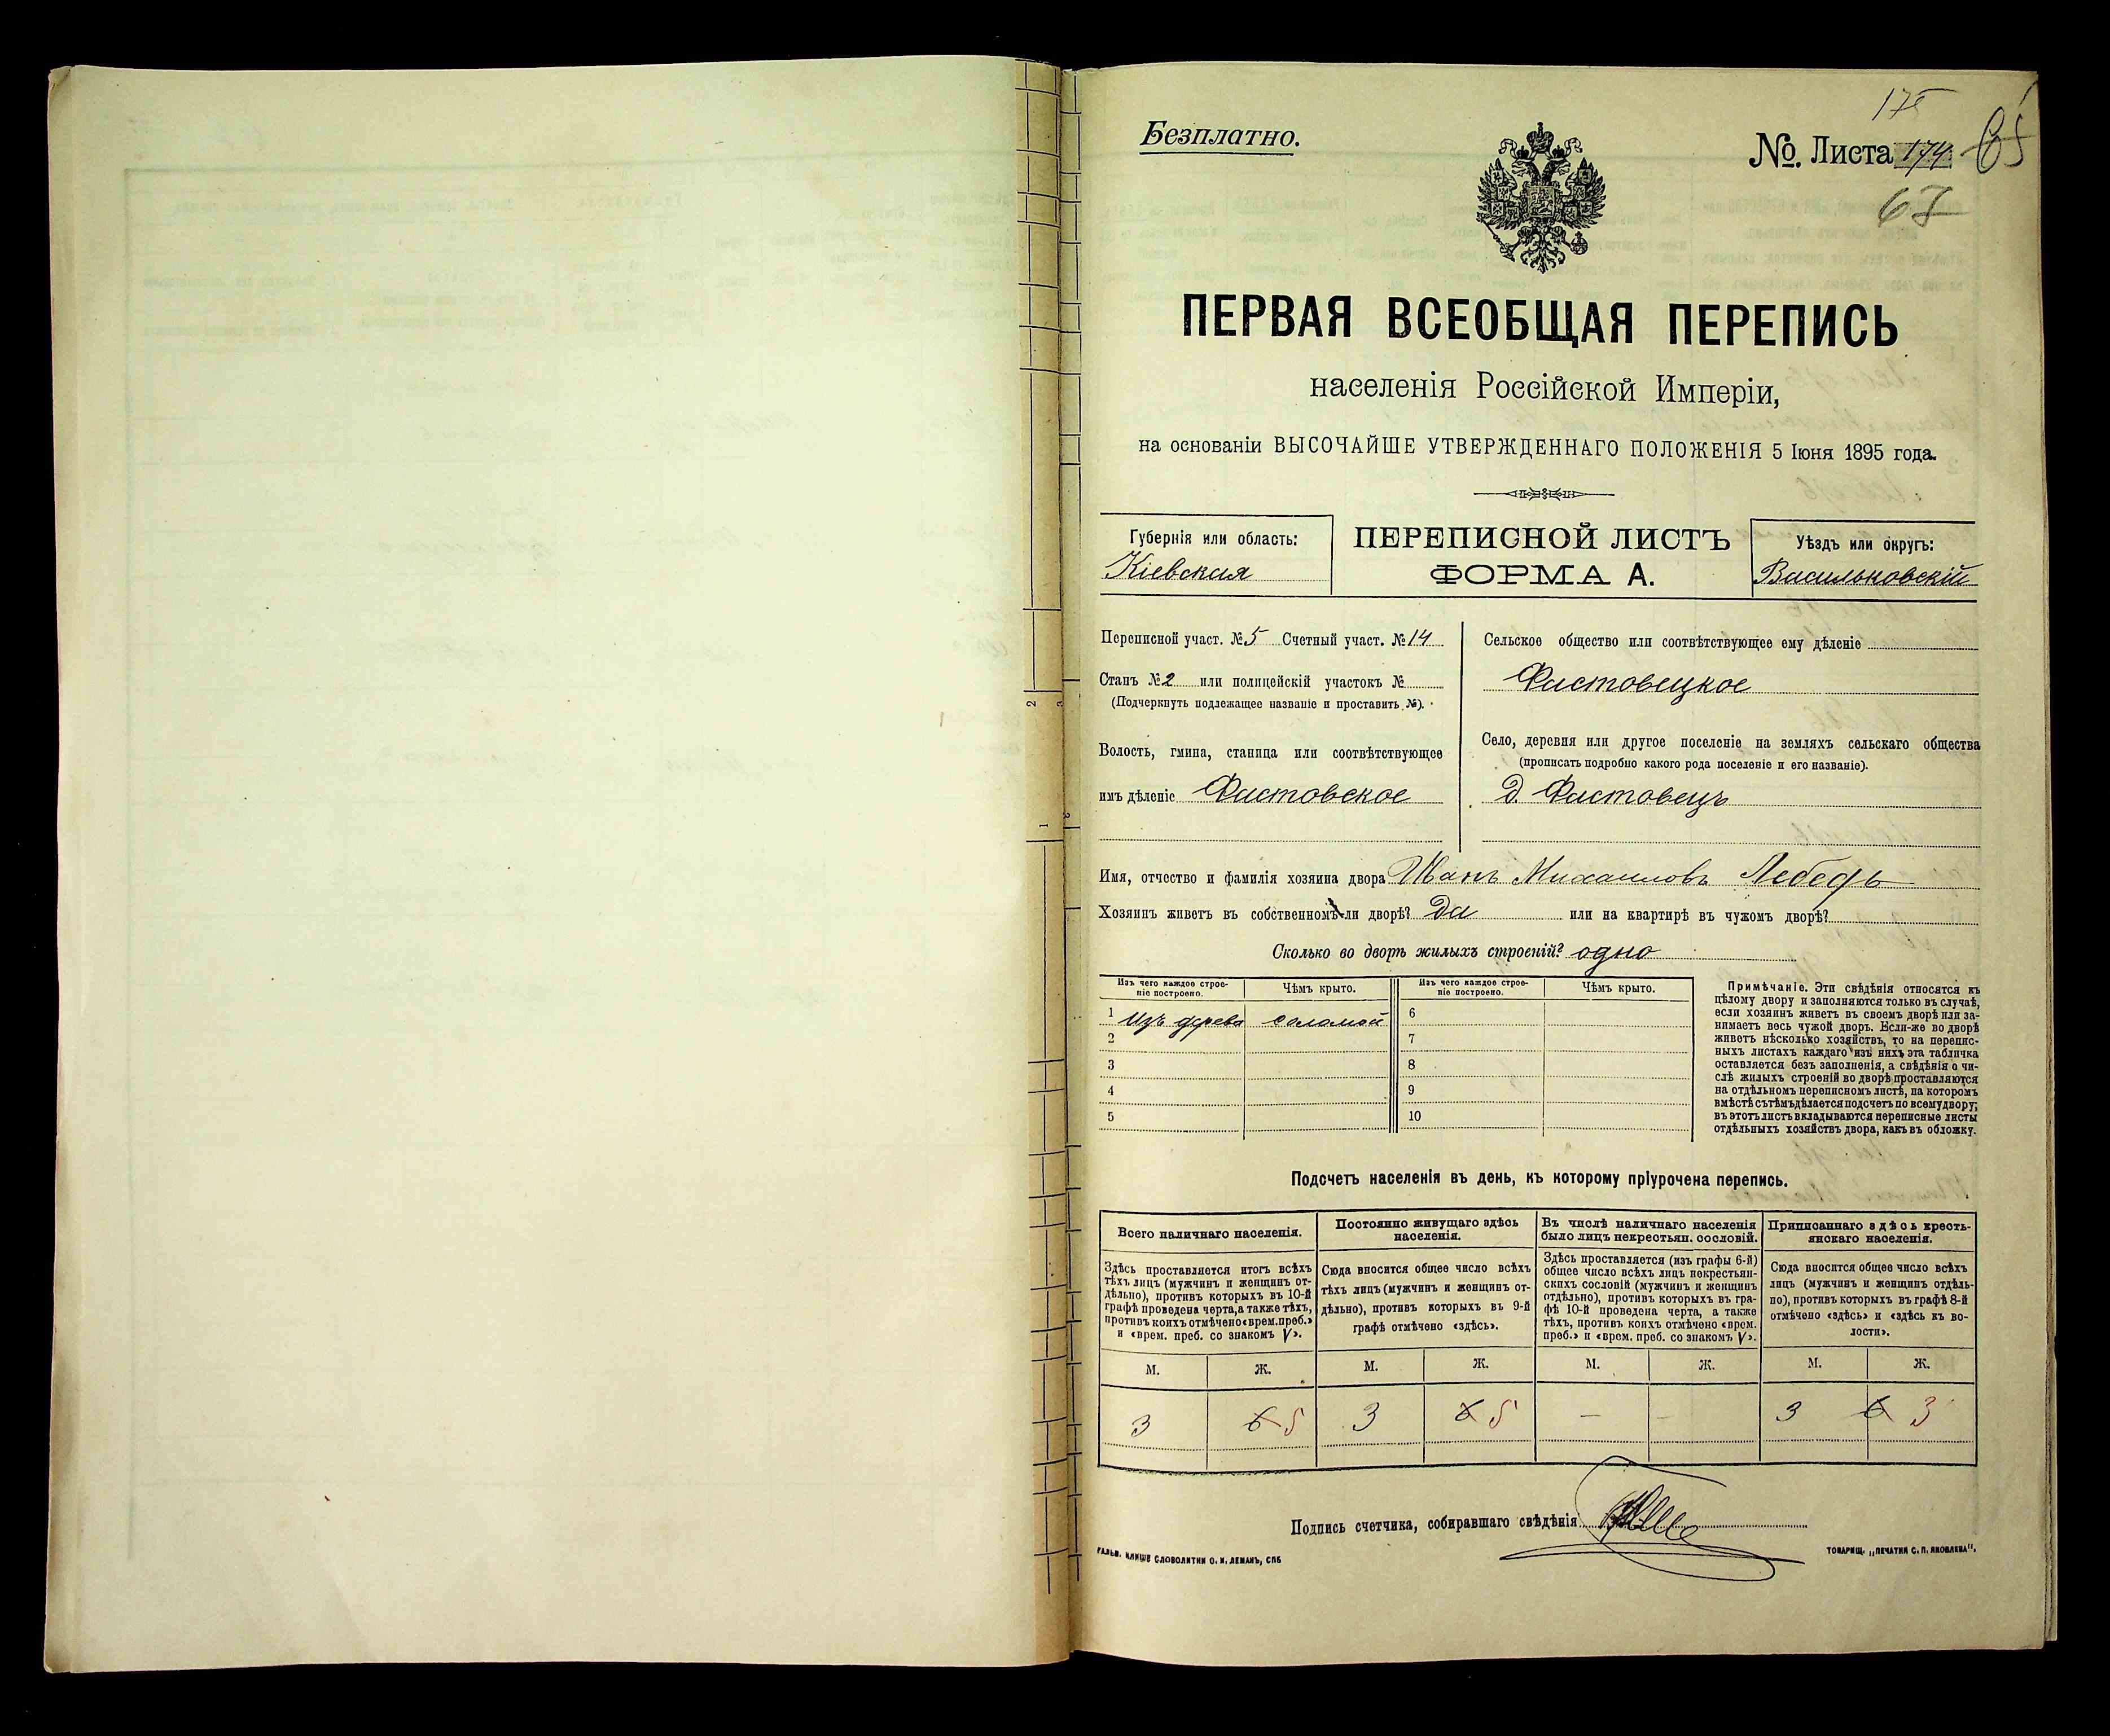 Безплатно.
175
№. Листа 174
67
ПЕРВАЯ ВСЕОБЩАЯ ПЕРЕПИСЬ
населенія Россійской Имперіи,
на основаніи ВЫСОЧАЙШЕ УТВЕРЖДЕННАГО ПОЛОЖЕНІЯ 5 Іюня 1895 года.
Губернія или область:
Кіевская
ПЕРЕПИСНОЙ ЛИСТЪ
ФОРМА А.
Уѣздъ или округъ:
Васильковскій
Переписной участ. № 5 Счетный участ. № 14
Станъ № 2 или полицейскій участокъ №
(Подчеркнуть подлежащее названіе и проставить №).
Волость, гмина, станица или соотвѣтствующее
имъ дѣленіе Фастовское
Сельское общество или соотвѣтствующее ему дѣленіе
Фастовецкое
Село, деревня или другое поселеніе на земляхъ сельскаго общества
(прописать подробно какого рода поселеніе и его названіе).
Д. Фастовецъ
Имя, отчество и фамилія хозяина двора Иванъ Михаиловъ Лебедь
Хозяинъ живетъ въ собственномъ-ли дворѣ? Да или на квартирѣ въ чужомъ дворѣ?
Сколько во дворѣ жилыхъ строеній? одно
Изъ чего каждое строе-
ніе построено.
Чѣмъ крыто.
Изъ чего каждое строе-
ніе построено.
Чѣмъ крыто.
1 Изъ дерева соломой 6
2 7
3 8
4 9
5 10
Примѣчаніе. Эти свѣдѣнія относятся къ
цѣлому двору и заполняются только въ случаѣ,
если хозяинъ живетъ въ своемъ дворѣ или за-
нимаетъ весь чужой дворъ. Если-же во дворѣ
живетъ нѣсколько хозяйствъ, то на перепис-
ныхъ листахъ каждаго изъ нихъ эта табличка
оставляется безъ заполненія, а свѣдѣнія о чи-
слѣ жилыхъ строеній во дворѣ проставляются
на отдѣльномъ переписномъ листѣ, на которомъ
вмѣстѣ съ тѣмъ дѣлается подсчетъ по всему двору;
въ этотъ листъ вкладываются переписные листы
отдѣльныхъ хозяйствъ двора, какъ въ обложку.
Подсчетъ населенія въ день, къ которому пріурочена перепись.
Всего наличнаго населенія.
Здѣсь проставляется итогъ всѣхъ
тѣхъ лицъ (мужчинъ и женщинъ от-
дѣльно), противъ которыхъ въ 10-й
графѣ проведена черта, а также тѣхъ,
противъ коихъ отмѣчено «врем. преб.»
и «врем. преб. со знакомъ V».
Постоянно живущаго здѣсь
населенія.
Сюда вносится общее число всѣхъ
тѣхъ лицъ (мужчинъ и женщинъ от-
дѣльно), противъ которыхъ въ 9-й
графѣ отмѣчено «здѣсь».
Въ числѣ наличнаго населенія
было лицъ некрестьян. сословій.
Здѣсь проставляется (изъ графы 6-й)
общее число всѣхъ лицъ некрестьян-
скихъ сословій (мужчинъ и женщинъ
отдѣльно), противъ которыхъ въ гра-
фѣ 10-й проведена черта, а также
тѣхъ, противъ коихъ отмѣчено «врем.
преб.» и «врем. преб. со знакомъ V».
Приписаннаго здѣсь кресть-
янскаго населенія.
Сюда вносится общее число всѣхъ
лицъ (мужчинъ и женщинъ отдѣль-
но), противъ которыхъ въ графѣ 8-й
отмѣчено «здѣсь» и «здѣсь къ во-
лости».
М. Ж. М. Ж. М. Ж. М. Ж.
3 6 5 3 6 5 — — 3 6 3
Подпись счетчика, собиравшаго свѣдѣнія
ГАЛЬВ. КЛИШЕ СЛОВОЛИТНИ О. И. ЛЕМАНЪ, СПБ
ТОВАРИЩ. „ПЕЧАТНИ С. П. ЯКОВЛЕВА“.